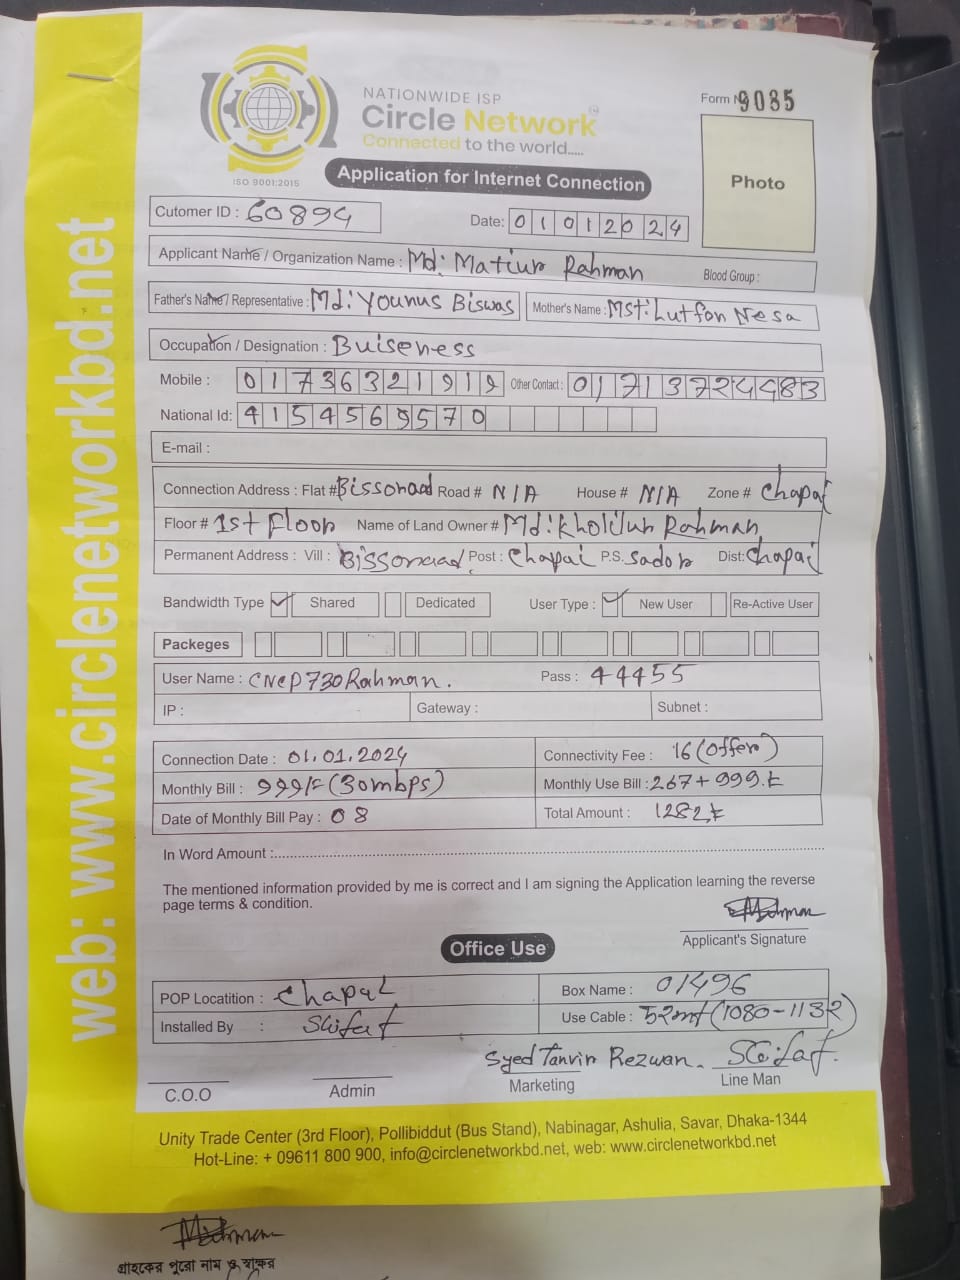 NATIONWIDE ISP
Circle Network
Connected to the world.....
ISO 9001:2015
Form N 9085
Application for Internet Connection
Photo
Cutomer ID : 60894
Date: 01012024
Applicant Name / Organization Name : Md: Matiur Rahman Blood Group :
Father's Name / Representative : Md: Younus Biswas Mother's Name : Mst: Lutfon Nesa
Occupation / Designation : Buiseness
Mobile : 01736321919 Other Contact : 01713724483
National Id: 4154569570
E-mail :
Connection Address : Flat # Bissonaad Road # N/A House # N/A Zone # Chapai
Floor # 1st Floor Name of Land Owner # Md: Kholilur Rahman
Permanent Address : Vill : Bissonaad Post : Chapai P.S. Sador Dist: Chapai
Bandwidth Type Shared Dedicated User Type : New User Re-Active User
Packeges
User Name : CNCP730Rahman. Pass : 44455
IP : Gateway : Subnet :
Connection Date : 01.01.2024 Connectivity Fee : 16 (Offer)
Monthly Bill : 999/= (30mbps) Monthly Use Bill : 267+999.
Date of Monthly Bill Pay : 08 Total Amount : 1282
In Word Amount :
The mentioned information provided by me is correct and I am signing the Application learning the reverse
page terms & condition.
Applicant's Signature
Office Use
POP Locatition : Chapai Box Name : 01496
Installed By : Use Cable : 52mt (1080-1132)
Syed Tanvir Rezwan.
C.O.O Admin Marketing Line Man
Unity Trade Center (3rd Floor), Pollibiddut (Bus Stand), Nabinagar, Ashulia, Savar, Dhaka-1344
Hot-Line: + 09611 800 900, info@circlenetworkbd.net, web: www.circlenetworkbd.net
web: www.circlenetworkbd.net
গ্রাহকের পুরো নাম ও স্বাক্ষর